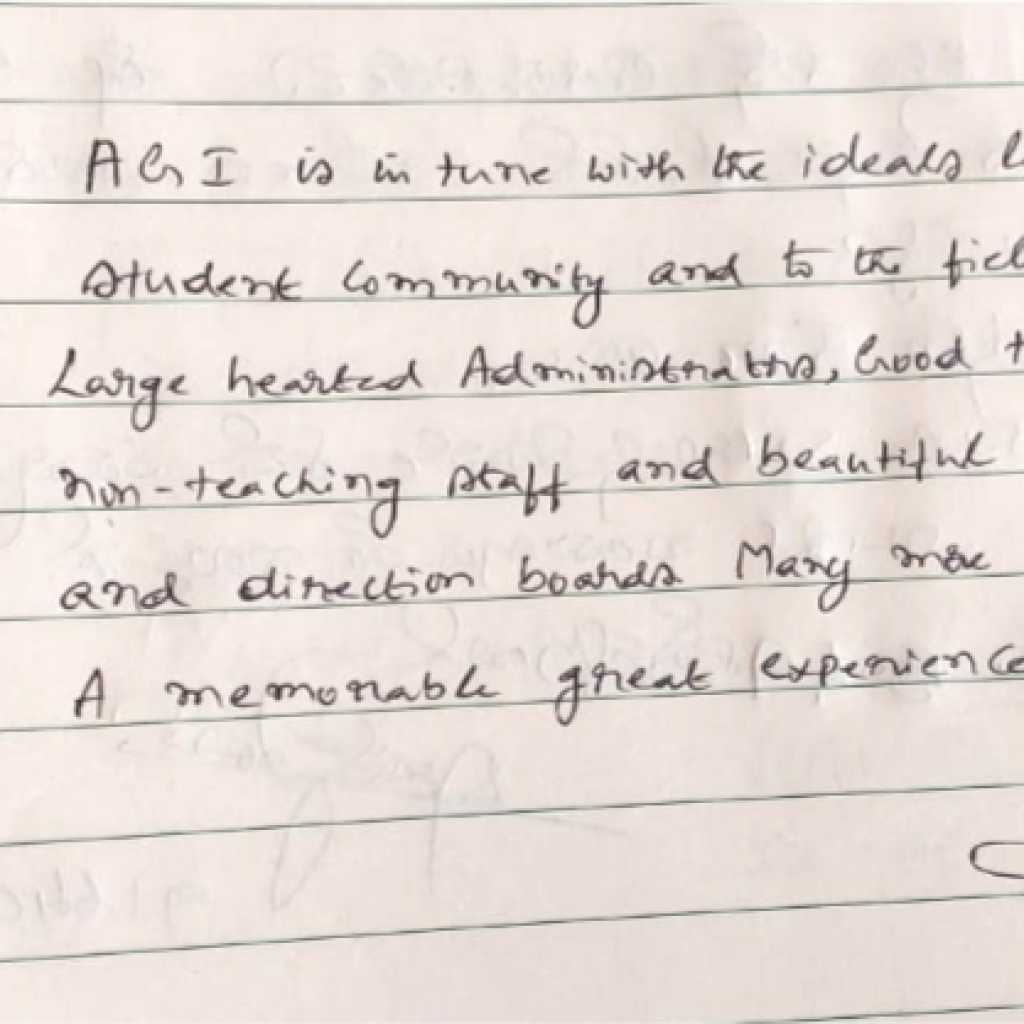 AGI is in tune with the ideals
student community and to the
Large hearted Administrators, Good
non-teaching staff and beautiful
and direction boards. Many more
A memorable great experience